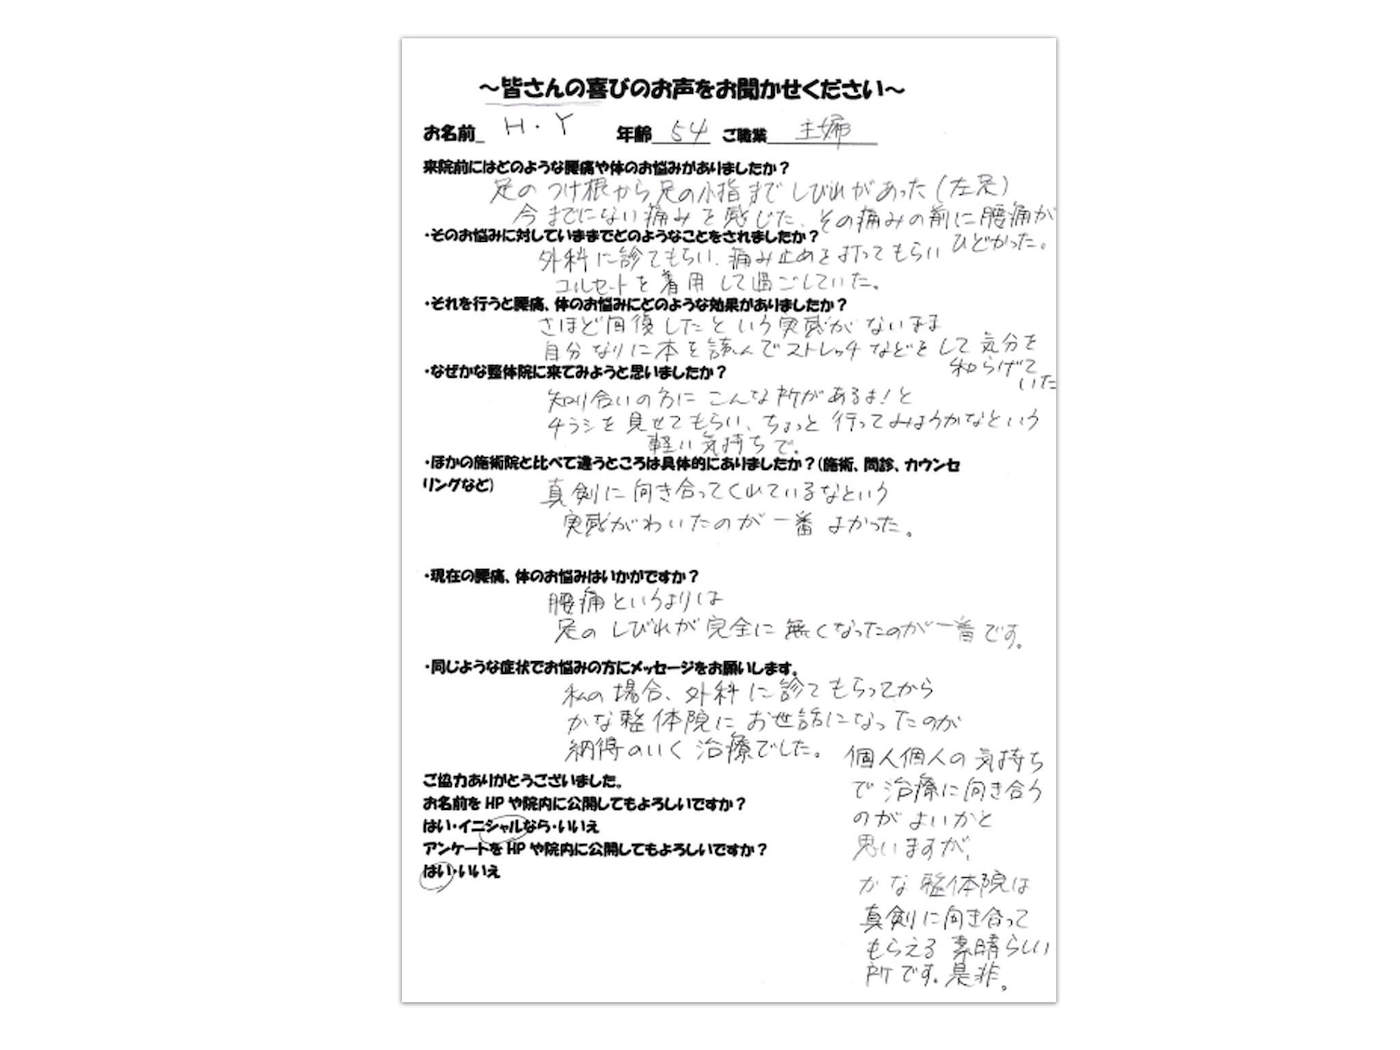 ～皆さんの喜びのお声をお聞かせください～
お名前 H・Y 年齢 54 ご職業 主婦
来院前にはどのような腰痛や体のお悩みがありましたか？
足のつけ根から足の小指までしびれがあった（左足）
今までにない痛みを感じた、その痛みの前に腰痛が
ひどかった。
・そのお悩みに対していままでどのようなことをされましたか？
外科に診てもらい、痛み止めを打ってもらい
コルセートを着用して過ごしていた。
・それを行うと腰痛、体のお悩みにどのような効果がありましたか？
さほど回復したという実感がないまま
自分なりに本を読んでストレッチなどをして気分を
和らげて
いた
・なぜかな整体院に来てみようと思いましたか？
知り合いの方にこんな所があるよ！と
チラシを見せてもらい、ちょっと行ってみようかなという
軽い気持ちで。
・ほかの施術院と比べて違うところは具体的にありましたか？（施術、問診、カウンセ
リングなど）
真剣に向き合ってくれているなという
実感がわいたのが一番よかった。
・現在の腰痛、体のお悩みはいかがですか？
腰痛というよりは
足のしびれが完全に無くなったのが一番です。
・同じような症状でお悩みの方にメッセージをお願いします。
私の場合、外科に診てもらってから
かな整体院にお世話になったのが
納得のいく治療でした。
個人個人の気持ち
で治療に向き合う
のがよいかと
思いますが、
かな整体院は
真剣に向き合って
もらえる素晴らしい
所です。是非。
ご協力ありがとうございました。
お名前をHPや院内に公開してもよろしいですか？
はい・イニシャルなら・いいえ
アンケートをHPや院内に公開してもよろしいですか？
はい・いいえ